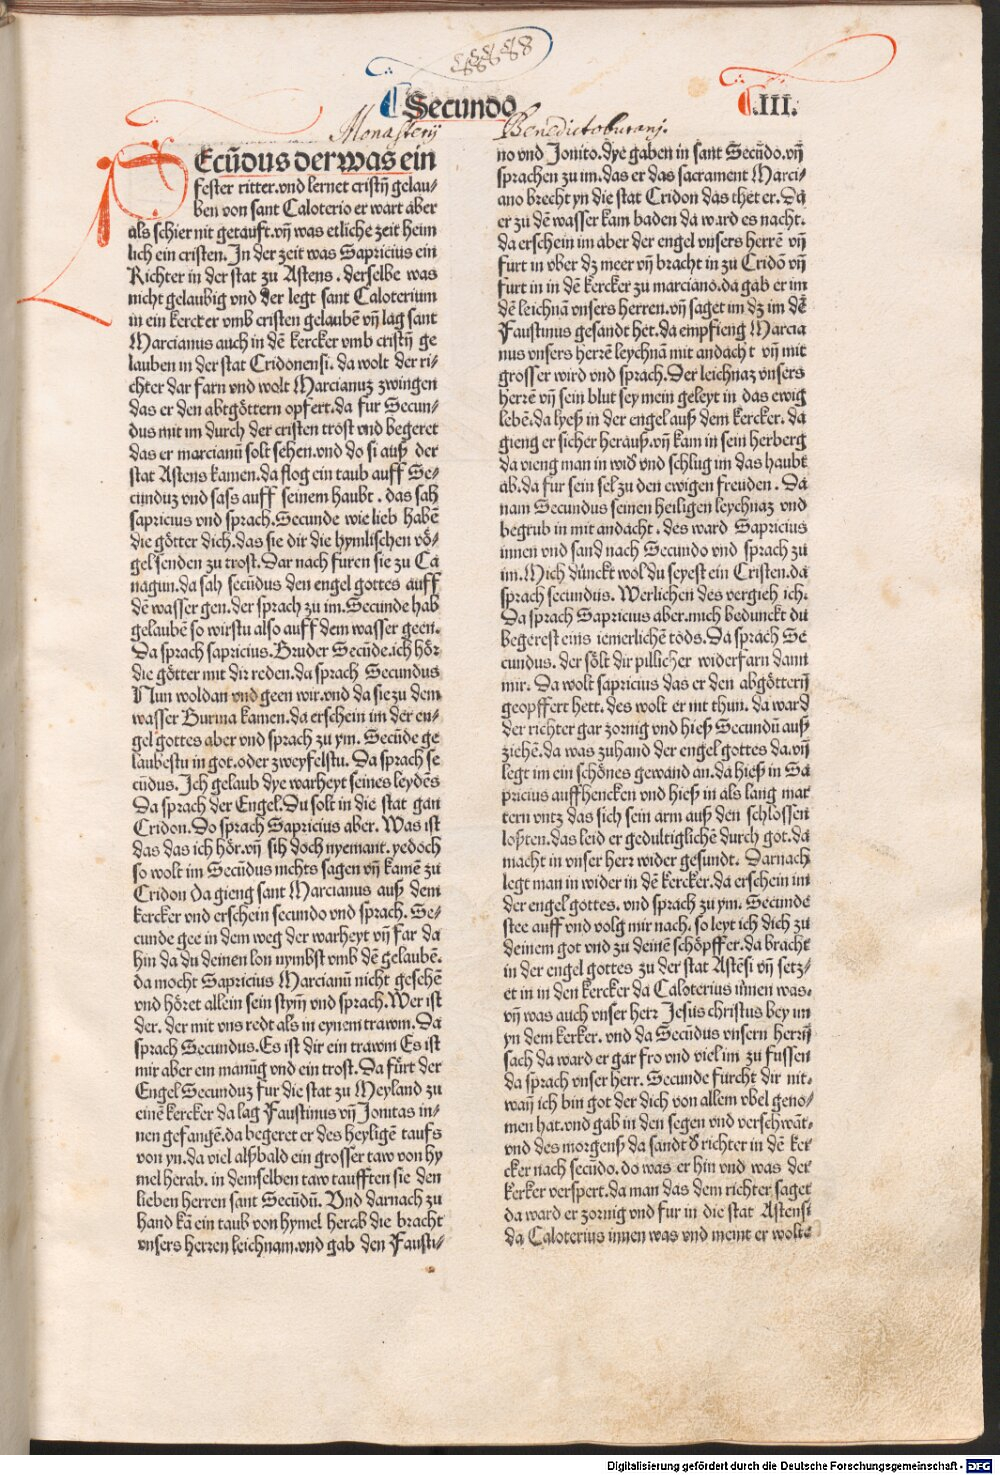 Secundo
.III.
Monasterij Benedictoburani.
SEcūdus der was ein
fester ritter. vnd lernet cristñ gelau-
ben von sant Caloterio er wart aber
als schier nit getauft. vñ was etliche zeit heim
lich ein cristen. In der zeit was Sapricius ein
Richter in der stat zu Astens. derselbe was
nicht gelaubig vnd der legt sant Caloterium
in ein kercker vmb cristen gelaubē vñ lag sant
Marcianus auch in dē kercker vmb cristñ ge
lauben in der stat Cridonensi. da wolt der ri-
chter dar farn vnd wolt Marcianuz zwingen
das er den abtgöttern opfert. da fur Secun-
dus mit im durch der cristen tröst vnd begeret
das er marcianū solt sehen. vnd do si auß der
stat Astens kamen. da flog ein taub auff Se-
cunduz vnd sass auff seinem haubt. das sah
sapricius vnd sprach. Secunde wie lieb habē
die götter dich. das sie dir die hymlischen vö-
gel senden zu trost. Dar nach furen sie zu Ca
nagun. da sah secūdus den engel gottes auff
dē wasser gen. der sprach zu im. Secunde hab
gelaubē so wirstu also auff dem wasser geen.
Da sprach sapricius. Bruder Secūde. ich hör
die götter mit dir reden. da sprach Secundus
Nun woldan vnd geen wir. vnd da sie zu dem
wasser Burma kamen. da erschein im der en-
gel gottes aber vnd sprach zu ym. Secūde ge
laubestu in got. oder zweyfelstu. Da sprach se
cūdus. Ich gelaub dye warheyt seines leydēs
Da sprach der Engel. Du solt in die stat gan
Cridon. Do sprach Sapricius aber. Was ist
das das ich hör. vñ sih doch nyemant. yedoch
so wolt im Secūdus nichts sagen vñ kamē zu
Cridon da gieng sant Marcianus auß dem
kercker vnd erschein secundo vnd sprach. Se-
cunde gee in dem weg der warheyt vñ far da
hin da du deinen lon nymbst vmb dē gelaubē.
da mocht Sapricius Marcianū nicht gesehē
vnd höret allein sein stym̄ vnd sprach. Wer ist
der. der mit vns redt als in eynem trawm. Da
sprach Secundus. Es ist dir ein trawm Es ist
mir aber ein manūg vnd ein trost. Da fürt der
Engel Secunduz fur die stat zu Meyland zu
einē kercker da lag Faustinus vñ Jonitas in-
nen gefangē. da begeret er des heyligē taufs
von yn. da viel alßbald ein grosser taw von hy
mel herab. in demselben taw taufften sie den
lieben herren sant Secūdū. Vnd darnach zu
hand kā ein taub von hymel herab die bracht
vnsers herren leichnam. vnd gab den Fausti-
no vnd Jonito. dye gaben in sant Secūdo. vñ
sprachen zu im. das er das sacrament Marci-
ano brecht yn die stat Cridon das thet er. Da
er zu dē wasser kam baden da ward es nacht.
da erschein im aber der engel vnsers herrē vñ
furt in vber dz meer vñ bracht in zu Cridō vñ
furt in in dē kercker zu marciano. da gab er im
dē leichnā vnsers herren. vñ saget im dz im dē
Faustinus gesandt het. da empfieng Marcia
nus vnsers herrē leychnā mit andacht vñ mit
grosser wird vnd sprach. Der leichnaz vnsers
herrē vñ sein blut sey mein geleyt in das ewig
lebē. da lyeß in der engel auß dem kercker. da
gieng er sicher herauß. vñ kam in sein herberg
da vieng man in wid vnd schlug im das haubt
ab. da fur sein sel zu den ewigen freuden. Da
nam Secundus seinen heiligen leychnaz vnd
begrub in mit andacht. des ward Sapricius
innen vnd sand nach Secundo vnd sprach zu
im. Mich dünckt wol du seyest ein Cristen. da
sprach secundus. Werlichen des vergieh ich.
Da sprach Sapricius aber. mich bedunckt du
begerest eins iemerlichē tods. Da sprach Se
cundus. der sölt dir pillicher widerfarn dann
mir. Da wolt sapricius das er den abgötterñ
geopffert hett. des wolt er nit thun. da ward
der richter gar zornig vnd hieß Secundū auß
ziehē. da was zuhand der engel gottes da. vñ
legt im ein schönes gewand an. da hieß in Sa
pricius auffhencken vnd hieß in als lang mar
tern vntz das sich sein arm auß den schlossen
loßten. das leid er gedultiglichē durch got. da
macht in vnser herr wider gesundt. Darnach
legt man in wider in dē kercker. da erschein im
der engel gottes. vnd sprach zu ym. Secunde
stee auff vnd volg mir nach. so leyt ich dich zu
deinem got vnd zu deinē schöpffer. da bracht
in der engel gottes zu der stat Astēsi vñ setz-
et in in den kercker da Caloterius innen was.
vñ was auch vnser herr Jesus christus bey im
yn dem kerker. vnd da Secūdus vnsern herrñ
sach da ward er gar fro vnd viel im zu fussen
da sprach vnser herr. Secunde fürcht dir nit.
wañ ich bin got der dich von allem vbel geno-
men hat. vnd gab in den segen vnd verschwāt.
vnd des morgenß da sandt d richter in dē ker
cker nach secūdo. do was er hin vnd was der
kerker verspert. da man das dem richter saget
da ward er zornig vnd fur in die stat Astensi
da Caloterius innen was vnd meint er wolte
Digitalisierung gefördert durch die Deutsche Forschungsgemeinschaft - DFG